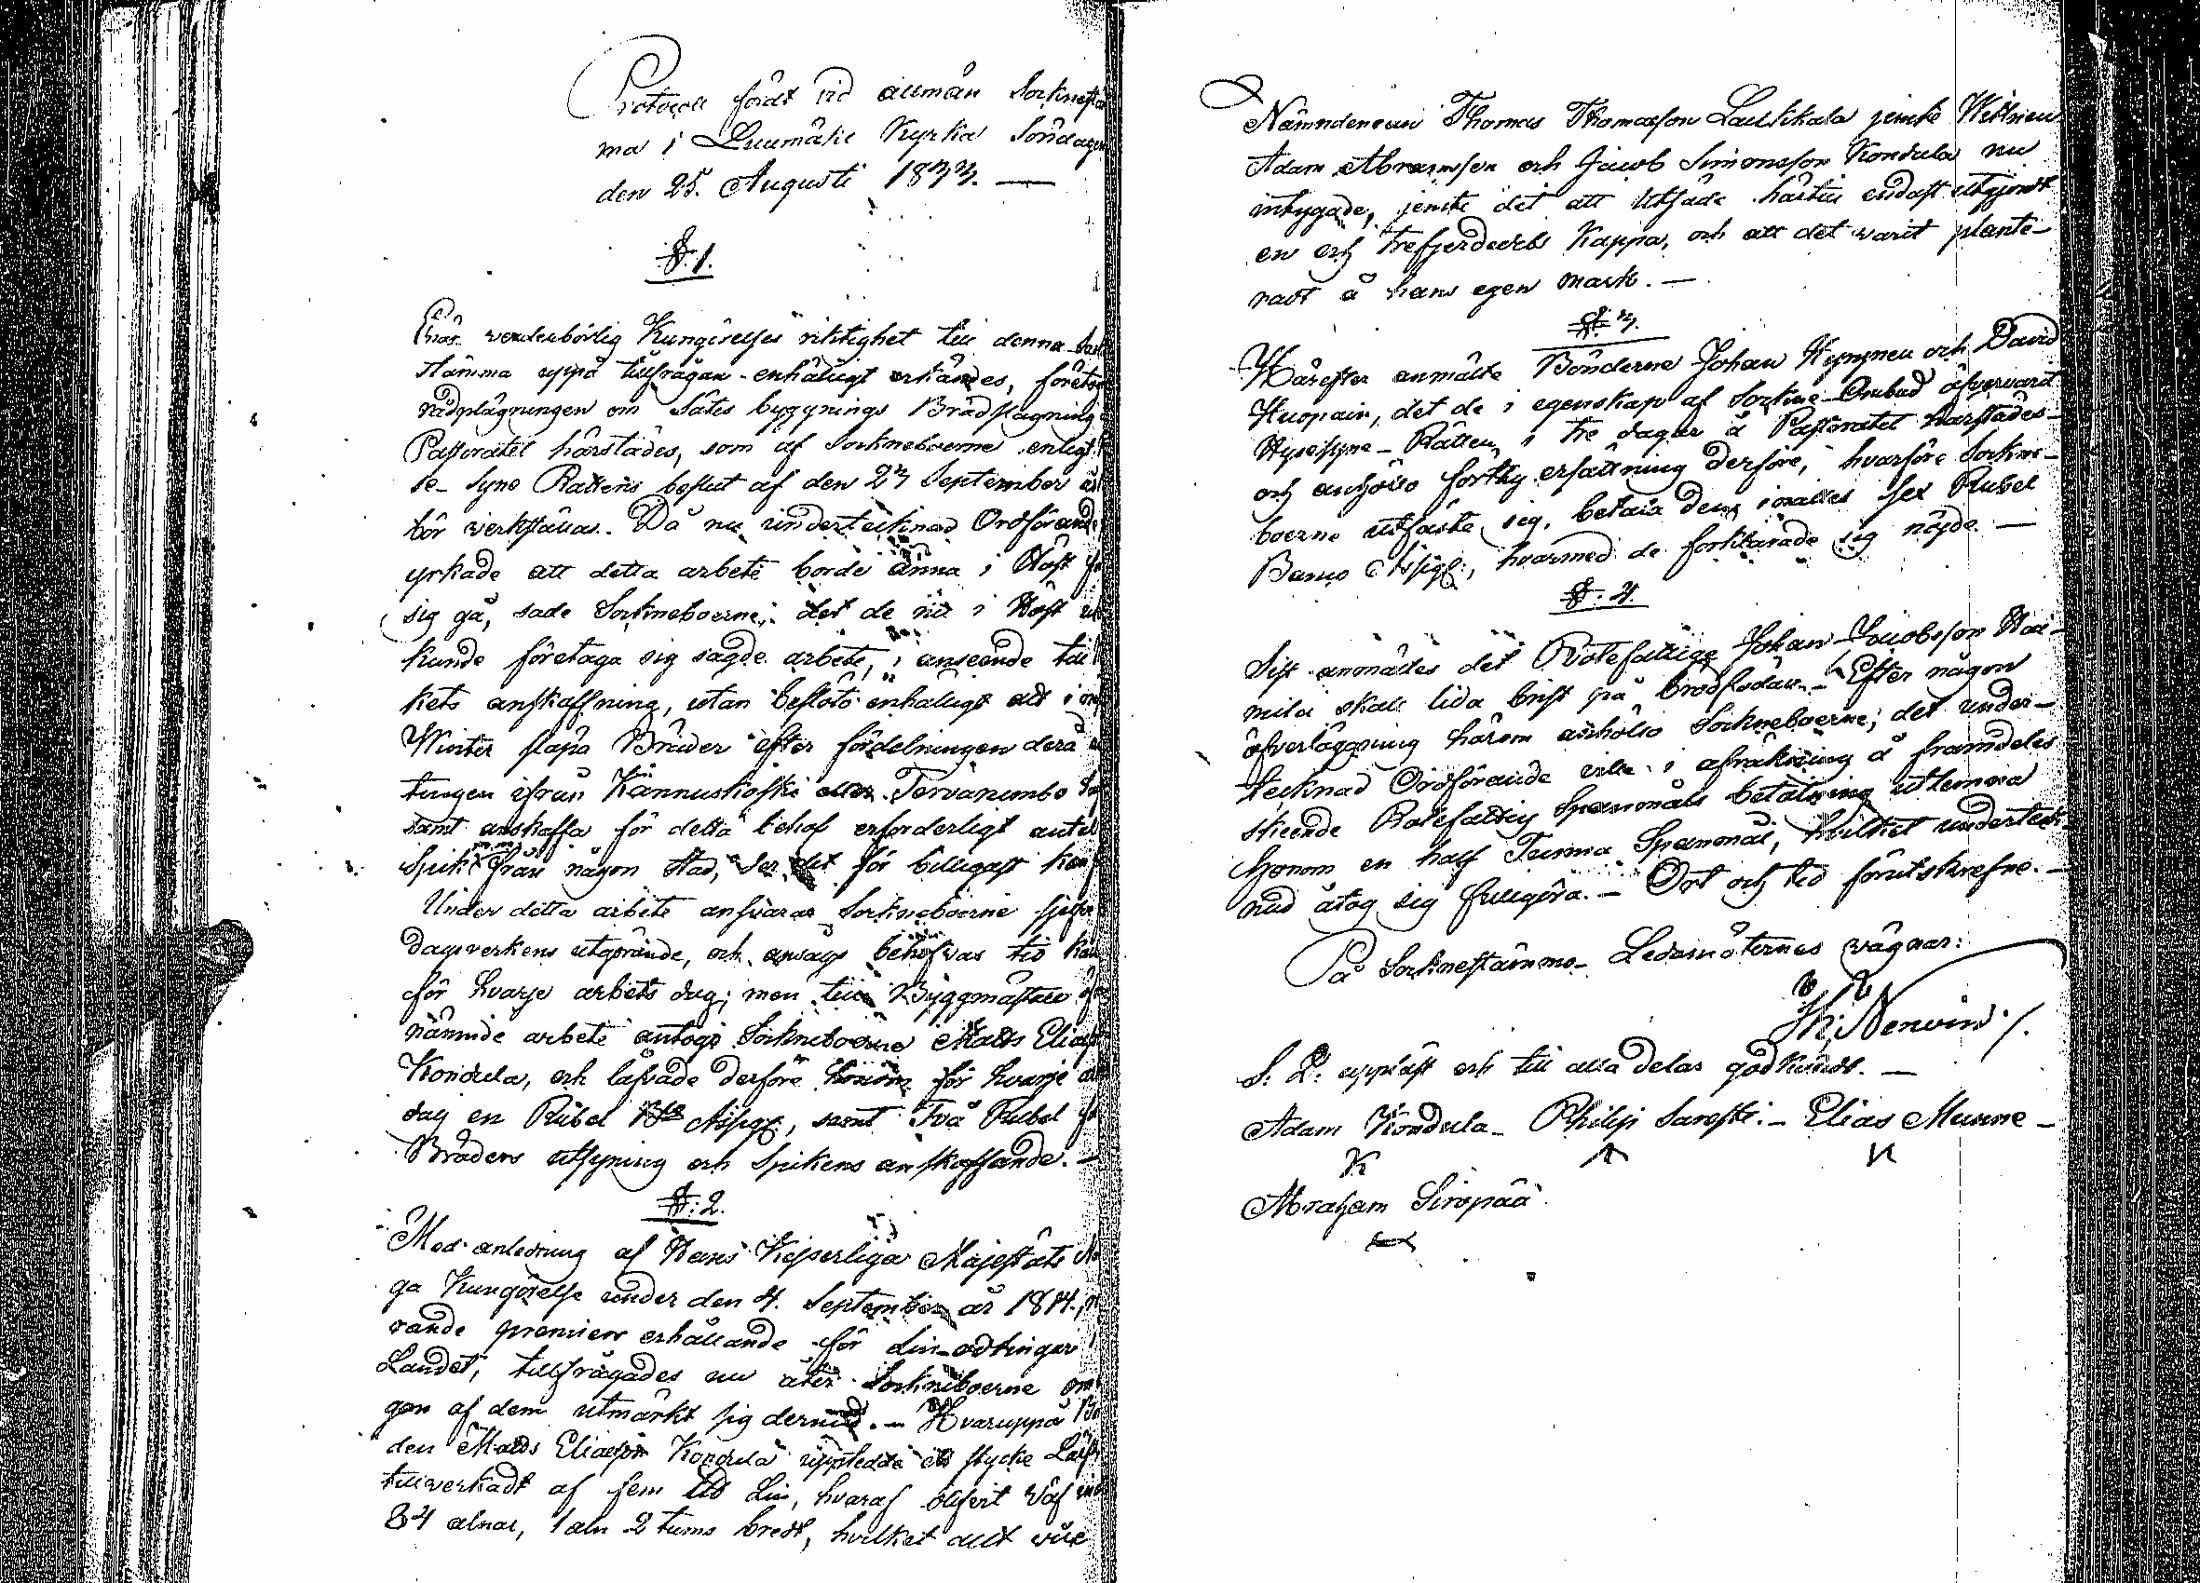 Protocoll fördt vid allmän Socknestä
ma i Luumäki Kyrka Söndagen
den 25. Augusti 1833. —
§. 1.
vederbörlig Kungörelses riktighet till denna
stämma uppå tillfrågan enhälligt erkändes, företo
rådplägningen om Sätes byggnings Brädslagning
Pastoratet härstädes, som af Sockneboerne enligt
se- Syns Rättens beslut af den 23 September
bör verkställas. Då nu undertecknad Ordförande
yrkade att detta arbete borde ännu i Höst
sig gå, sade Sockneboerne, det de nu i Höst
kunde företaga sig sagde arbete, i anseende till
kets anskaffning, utan beslöto enhälligt att i
Winter släpa Bräder efter fördelningen derå
tingen ifrån Kännuskoski eller Tervarumbo
samt anskaffa för detta behof erforderligt antal
Spik från någon stad, der det för billigast
Under detta arbete ansvarar Sockneboerne sjelf
dagsverkens utgörande, och ansågs behöfvas tio
för hvarje arbets dag; men till Byggmästare
nämnde arbete antogs Sockneboerne Matts Elias
Kondula, och låfvade derföre honom för hvarje
dag en Rubel B:co Assign:, samt Två Rubel
Bräders utsyning och Spikens anskaffande. —
§: 2.
Med anledning af Hans Kejserliga Majestäts
ga Kungörelse under den 4. September år 1814.
rande premiers erhållande för lin-odlingar
Landet, tillfrågades nu åter Sockneboerne om
gon af dem utmärkt sig dermed. — Hvaruppå
den Matts Eliasson Kondula uppstedde ett stycke
tillverkadt af fem Lin, hvaraf blifvit väf
84 alnar, 1 aln 2 tums bredt, hvilket allt
Nämndeman Thomas Thomasson Lautikala jemte Wittnen
Adam Abramsson och Jacob Simonsson Kondula nu
intygade, jemte det att Utsäde härtill endast utgjordt
en och trefjerdedels Kappa, och att det varit plante-
radt å hans egen mark. —
§ 3.
Härefter anmälte Bönderne Johan Kypynen och David
Huopain, det de i egenskap af Sockne-Ombud öfvervarit
Husesyns-Rätten i tre dagar å Pastoratet härstädes
och anhöllo förthy ersättning derföre, hvarföre Sockne-
boerne utfäste sig betala dem inalles sex Rubel
Banco Assign:, hvarmed de förklarade sig nöjde. —
§. 4.
Sist anmäldes det Rotefattige Johan Jacobsson
mila skall lida brist på brödfödan. — Efter någon
öfverläggning härom anhöllo Sockneboerne, det under-
tecknad Ordförande ville i afräkning å framdeles
skeende Rotefattig Spanmåls betalning utlemna
honom en half Tunna Spanmål, hvilket underteck-
nad åtog sig fullgöra. — Ort och tid förutskrefne. —
På Socknestämmo-Ledamöternes vägnar:
Nervin /.
S. D. uppläst och till alla delar godkändt. —
Adam Kondula — Philip Saresti. — Elias Munne —
Abraham Siropää